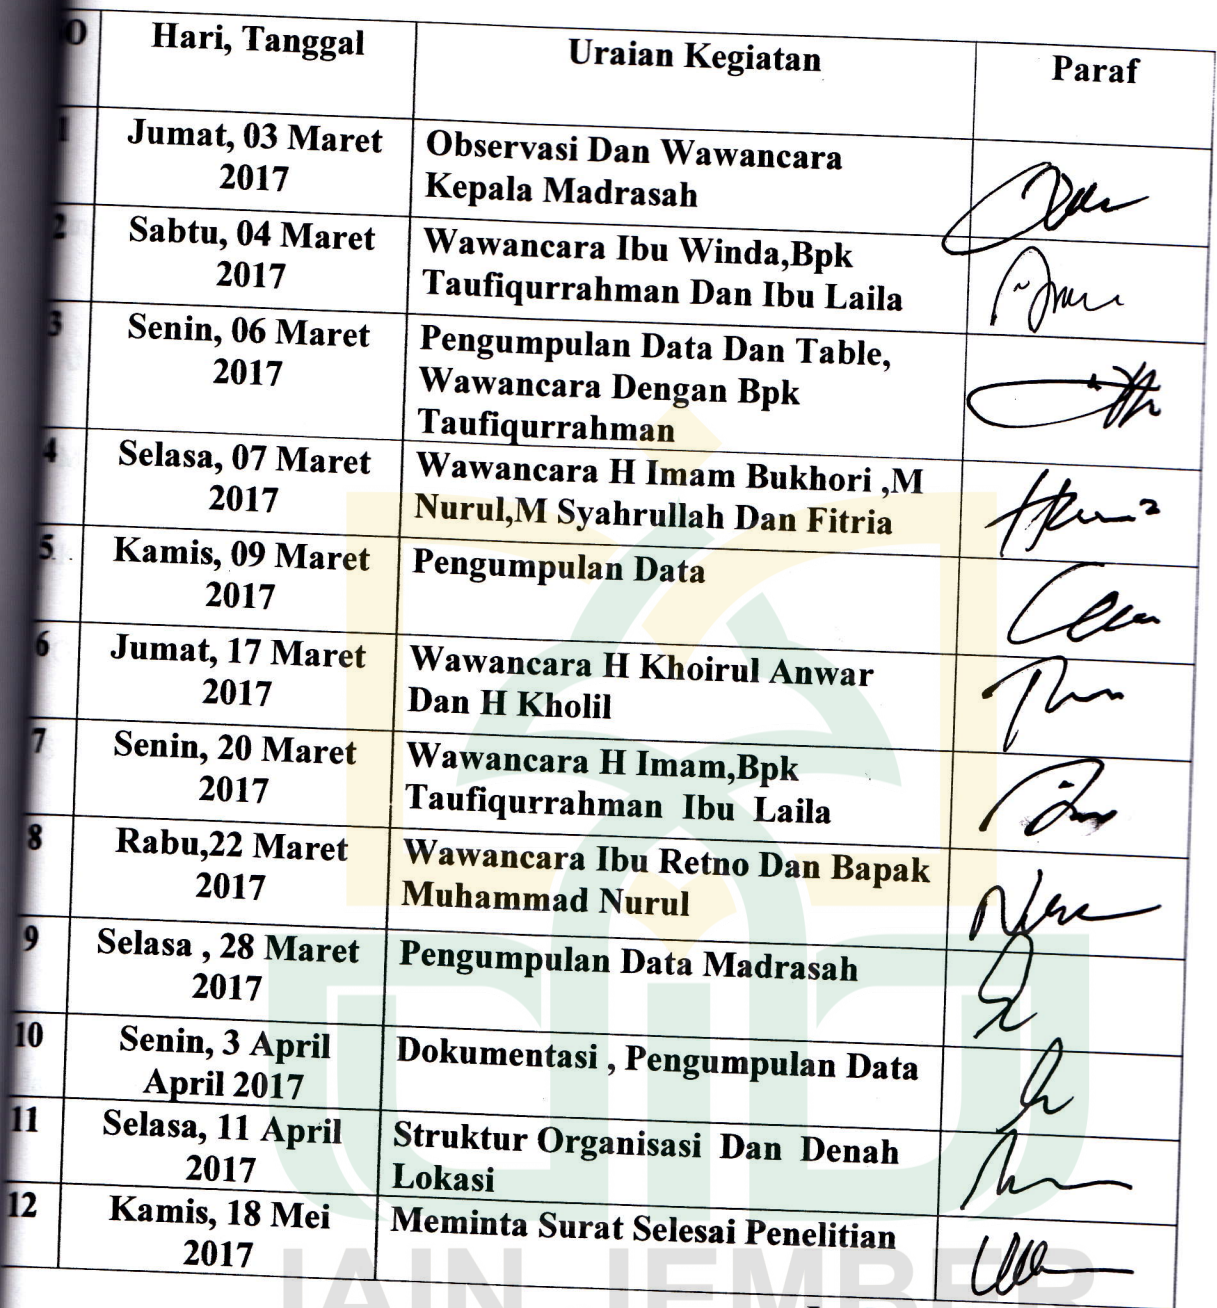 O Hari, Tanggal Uraian Kegiatan Paraf
1 Jumat, 03 Maret Observasi Dan Wawancara
2017 Kepala Madrasah
2 Sabtu, 04 Maret Wawancara Ibu Winda,Bpk
2017 Taufiqurrahman Dan Ibu Laila
3 Senin, 06 Maret Pengumpulan Data Dan Table,
2017 Wawancara Dengan Bpk
Taufiqurrahman
4 Selasa, 07 Maret Wawancara H Imam Bukhori ,M
2017 Nurul,M Syahrullah Dan Fitria
5. Kamis, 09 Maret Pengumpulan Data
2017
6 Jumat, 17 Maret Wawancara H Khoirul Anwar
2017 Dan H Kholil
7 Senin, 20 Maret Wawancara H Imam,Bpk
2017 Taufiqurrahman Ibu Laila
8 Rabu,22 Maret Wawancara Ibu Retno Dan Bapak
2017 Muhammad Nurul
9 Selasa , 28 Maret Pengumpulan Data Madrasah
2017
10 Senin, 3 April Dokumentasi , Pengumpulan Data
April 2017
11 Selasa, 11 April Struktur Organisasi Dan Denah
2017 Lokasi
12 Kamis, 18 Mei Meminta Surat Selesai Penelitian
2017
IAIN JEMBER